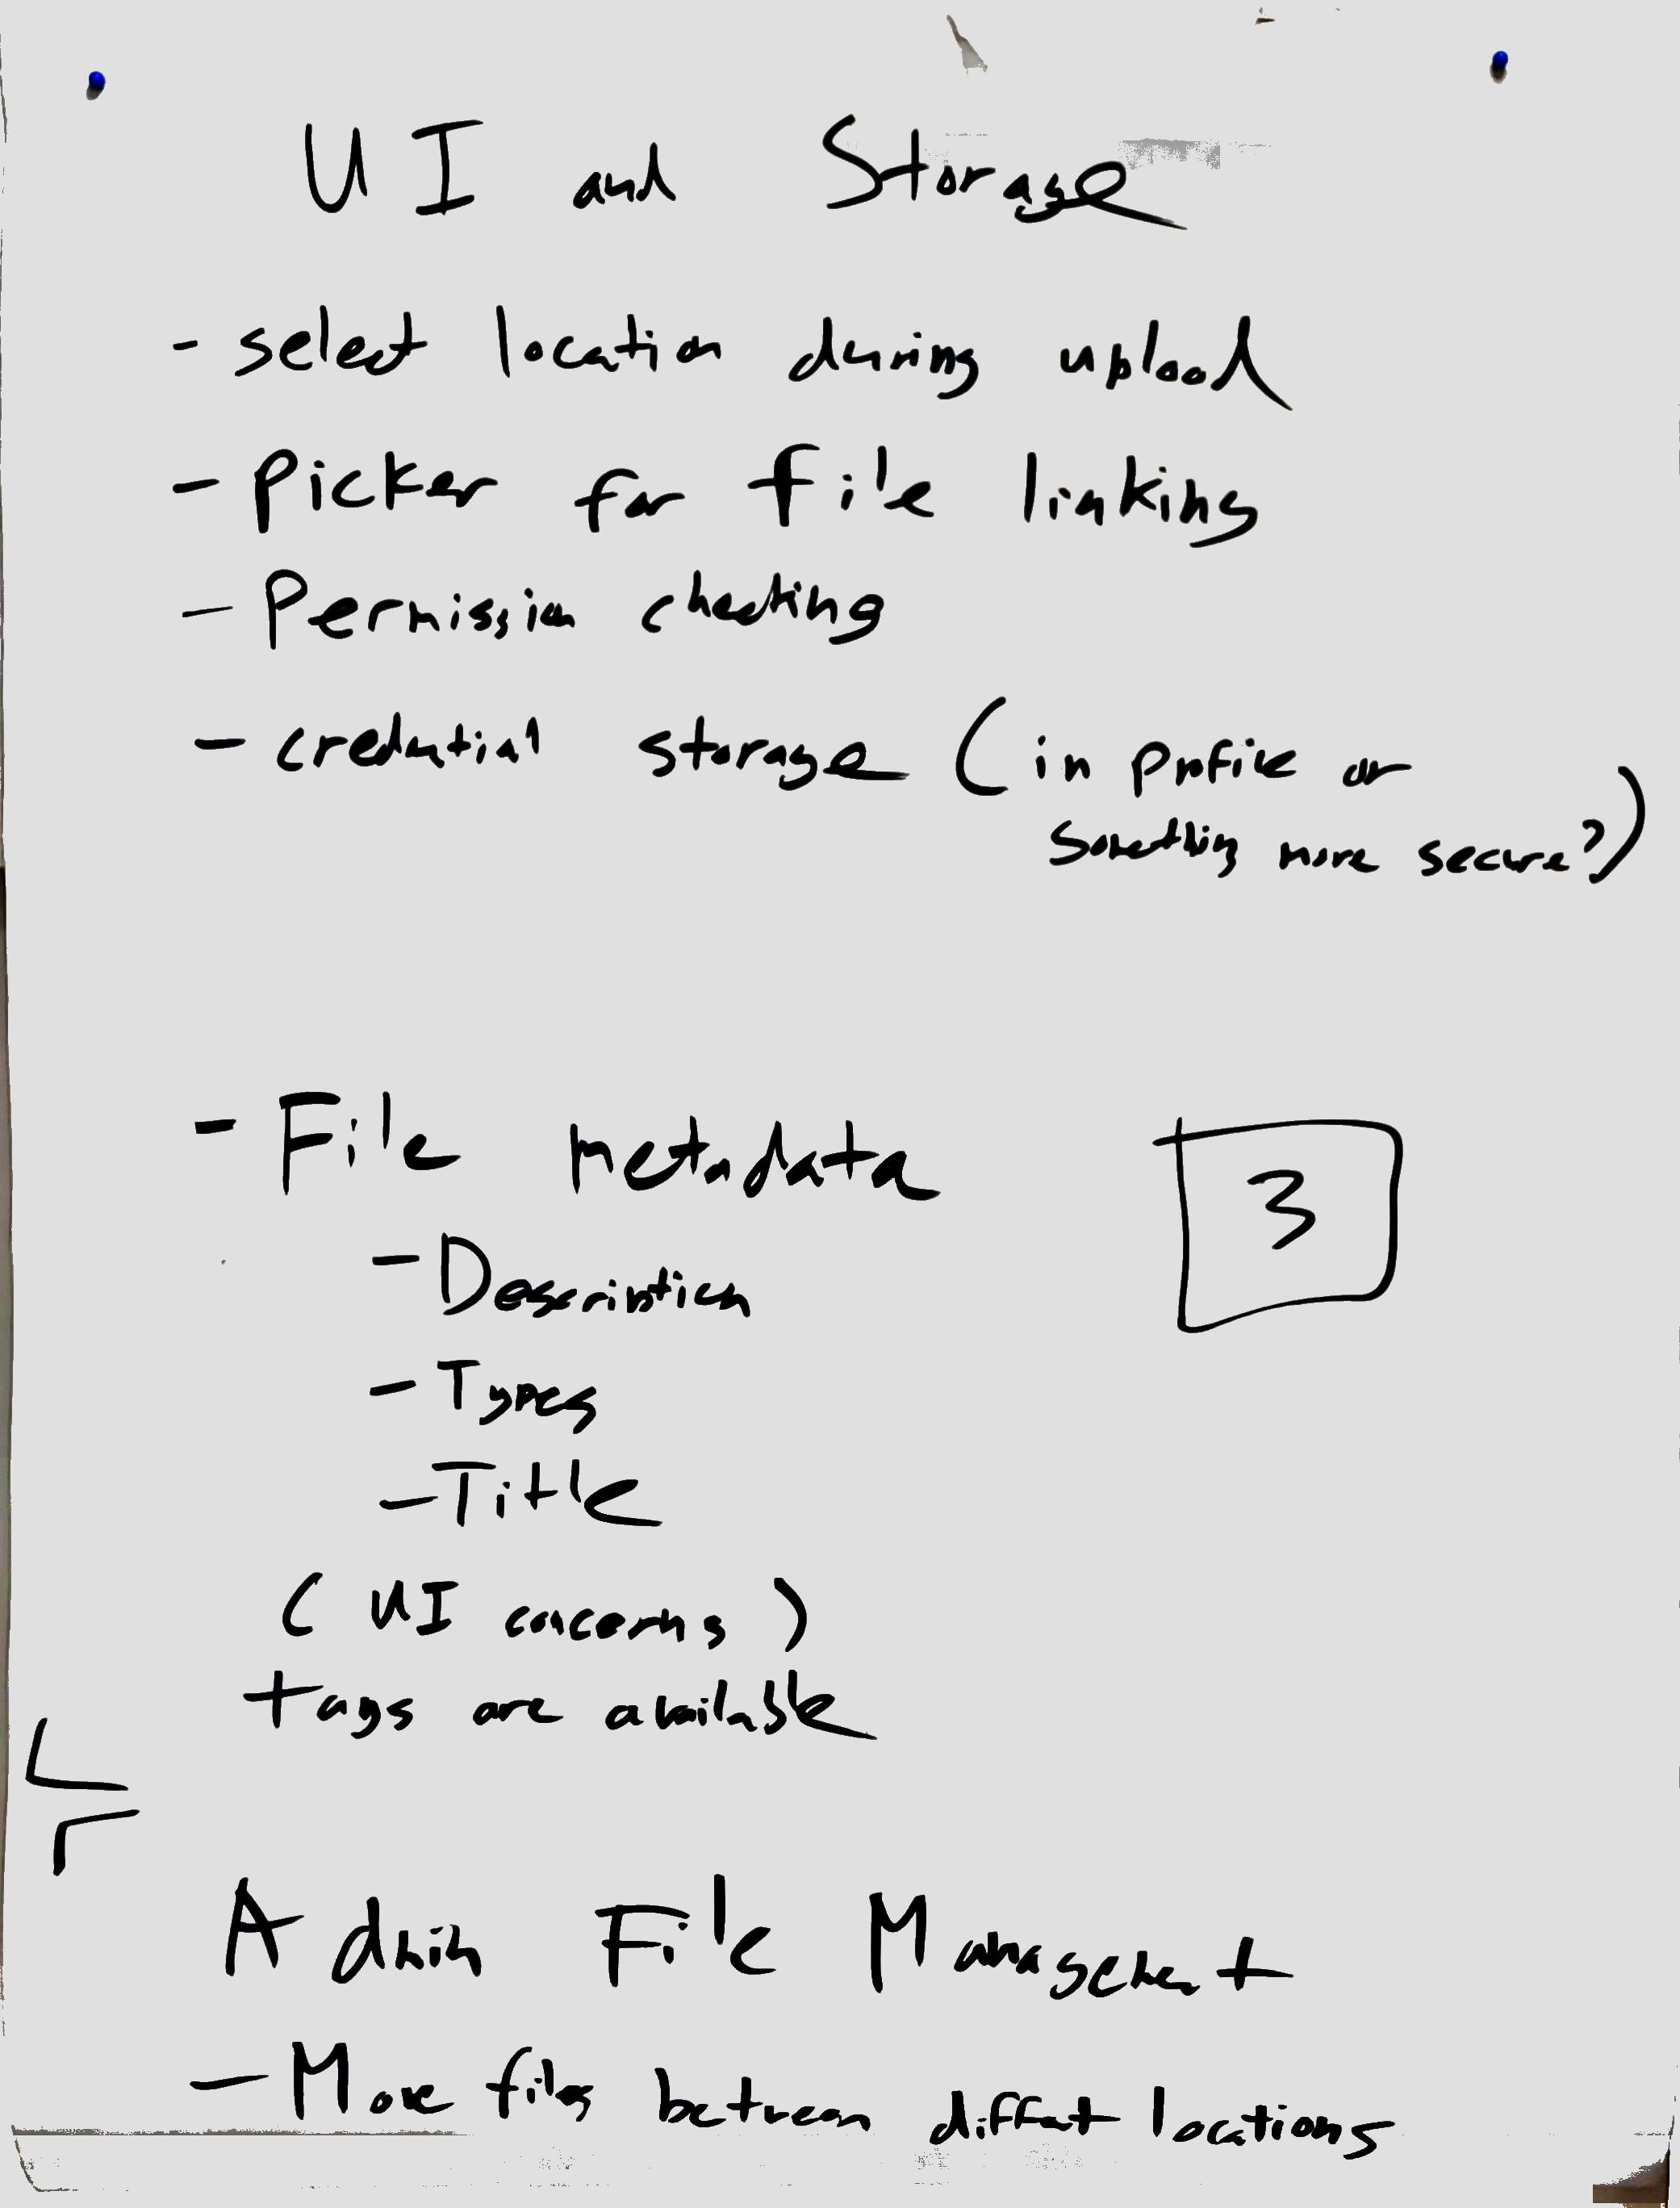 UI and Storage
- select location during upload
- Picker for file linking
- Permission checking
- credential storage (in profile or
something more secure?)
- File metadata
3
- Description
- Types
- Title
(UI concerns)
tags are available
Admin File Management
- Move files between diffent locations